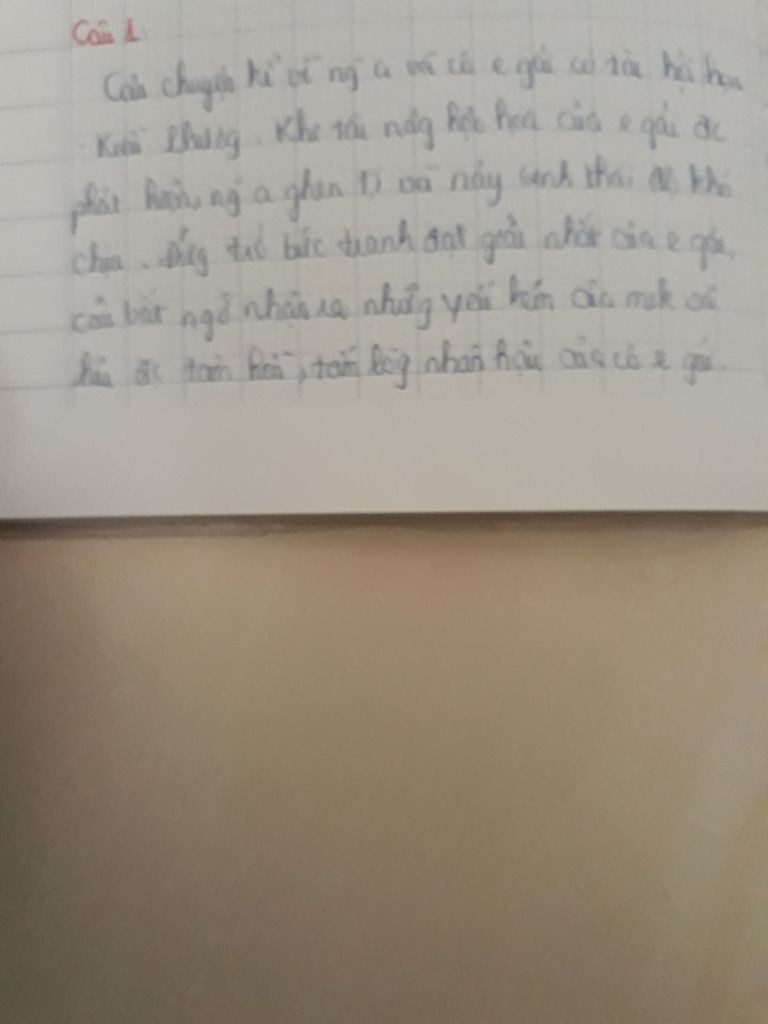 Câu 1:
Câu chuyện kể về ng a và cô e gái có tài hội họa
Kiều Phương. Khi tài năng hội họa của e gái đc
phát hiện, ng a ghen tị và nảy sinh thái độ khó
chịu. Đứng trc bức tranh đạt giải nhất của e gái,
cậu bất ngờ nhận ra những yếu kém của mk và
hiểu đc tâm hồn, tấm lòng nhân hậu của cô e gái.